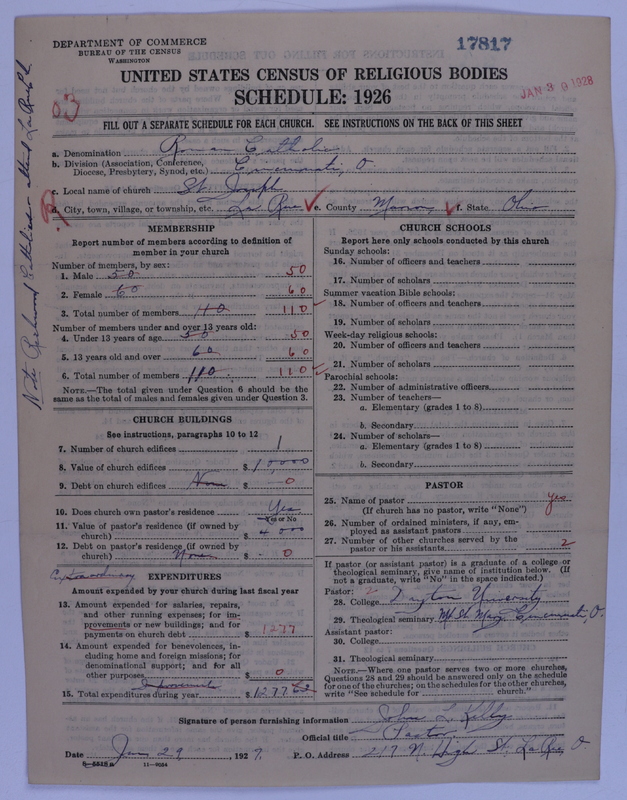 DEPARTMENT OF COMMERCE
BUREAU OF THE CENSUS
WASHINGTON
17817
JAN 30 1928
UNITED STATES CENSUS OF RELIGIOUS BODIES
SCHEDULE: 1926
FILL OUT A SEPARATE SCHEDULE FOR EACH CHURCH. SEE INSTRUCTIONS ON THE BACK OF THIS SHEET
a. Denomination Roman Catholic
b. Division (Association, Conference, Diocese, Presbytery, Synod, etc.) Cincinnati, O
c. Local name of church St. Joseph
d. City, town, village, or township, etc. La Rue e. County Marion f. State Ohio
Note Richwood Catholics attend La Rue
MEMBERSHIP
Report number of members according to definition of
member in your church
Number of members, by sex:
1. Male 50 50
2. Female 60 60
3. Total number of members 110 110
Number of members under and over 13 years old:
4. Under 13 years of age 50 50
5. 13 years old and over 60 60
6. Total number of members 110 110
NOTE.—The total given under Question 6 should be
same as the total of males and females given under Question 3.
CHURCH BUILDINGS
See instructions, paragraphs 10 to 12
7. Number of church edifices 1
8. Value of church edifices $10,000
9. Debt on church edifices None $ 0
10. Does church own pastor's residence Yes
Yes or No
11. Value of pastor's residence (if owned by
church) $4000
12. Debt on pastor's residence (if owned by
church) None $ 0
EXPENDITURES
Amount expended by your church during last fiscal year
13. Amount expended for salaries, repairs,
and other running expenses; for im-
provements or new buildings; and for
payments on church debt $ 1277
14. Amount expended for benevolences, in-
cluding home and foreign missions; for
denominational support; and for all
other purposes $ 0
15. Total expenditures during year $1277
CHURCH SCHOOLS
Report here only schools conducted by this church
Sunday schools:
16. Number of officers and teachers
17. Number of scholars
Summer vacation Bible schools:
18. Number of officers and teachers
19. Number of scholars
Week-day religious schools:
20. Number of officers and teachers
21. Number of scholars
Parochial schools:
22. Number of administrative officers
23. Number of teachers—
a. Elementary (grades 1 to 8)
b. Secondary
24. Number of scholars—
a. Elementary (grades 1 to 8)
b. Secondary
PASTOR
25. Name of pastor yes
(If church has no pastor, write "None")
26. Number of ordained ministers, if any, em-
ployed as assistant pastors
27. Number of other churches served by the
pastor or his assistants 2
If pastor (or assistant pastor) is a graduate of a college or
theological seminary, give name of institution below. (If
not a graduate, write "No" in the space indicated.)
Pastor: 2
28. College Dayton University
29. Theological seminary Mt. St. Mary Cincinnati, O.
Assistant pastor:
30. College
31. Theological seminary
NOTE.—Where one pastor serves two or more churches,
Questions 28 and 29 should be answered only on the schedule
for one of the churches; on the schedules for the other churches,
write "See schedule for church."
Signature of person furnishing information John L. Kelly
Official title Pastor
Date Jan 29, 1927. P. O. Address 217 N. High St. La Rue, O
8—5512 a 11—9064